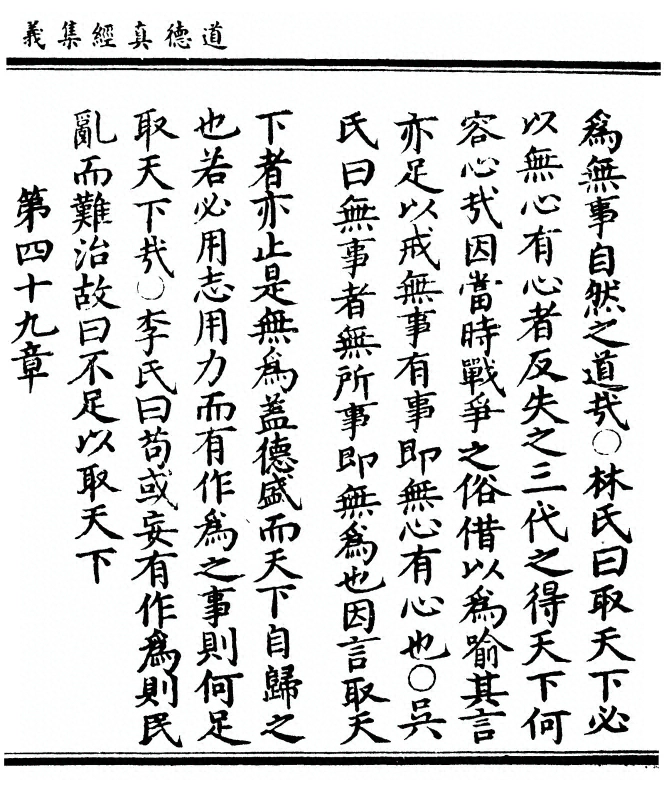 道德真經集義
爲無事自然之道㢤○林氏曰取天下必
以無心有心者反失之三代之得天下何
容心㢤因當時戰爭之俗借以爲喻其言
亦足以戒無事有事即無心有心也○吳
氏曰無事者無所事即無爲也因言取天
下者亦止是無爲盖德盛而天下自歸之
也若必用志用力而有作爲之事則何足
取天下㢤○李氏曰苟或妄有作爲則民
亂而難治故曰不足以取天下
第四十九章